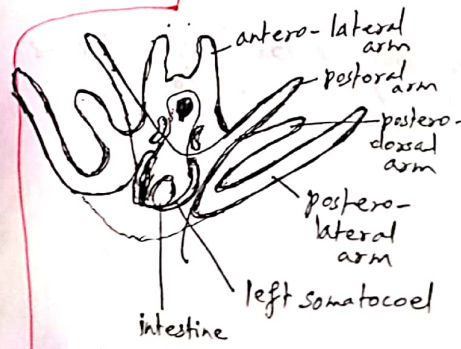 antero-lateral
arm
postoral
arm
postero-
dorsal
arm
postero-
lateral
arm
left somatocoel
intestine